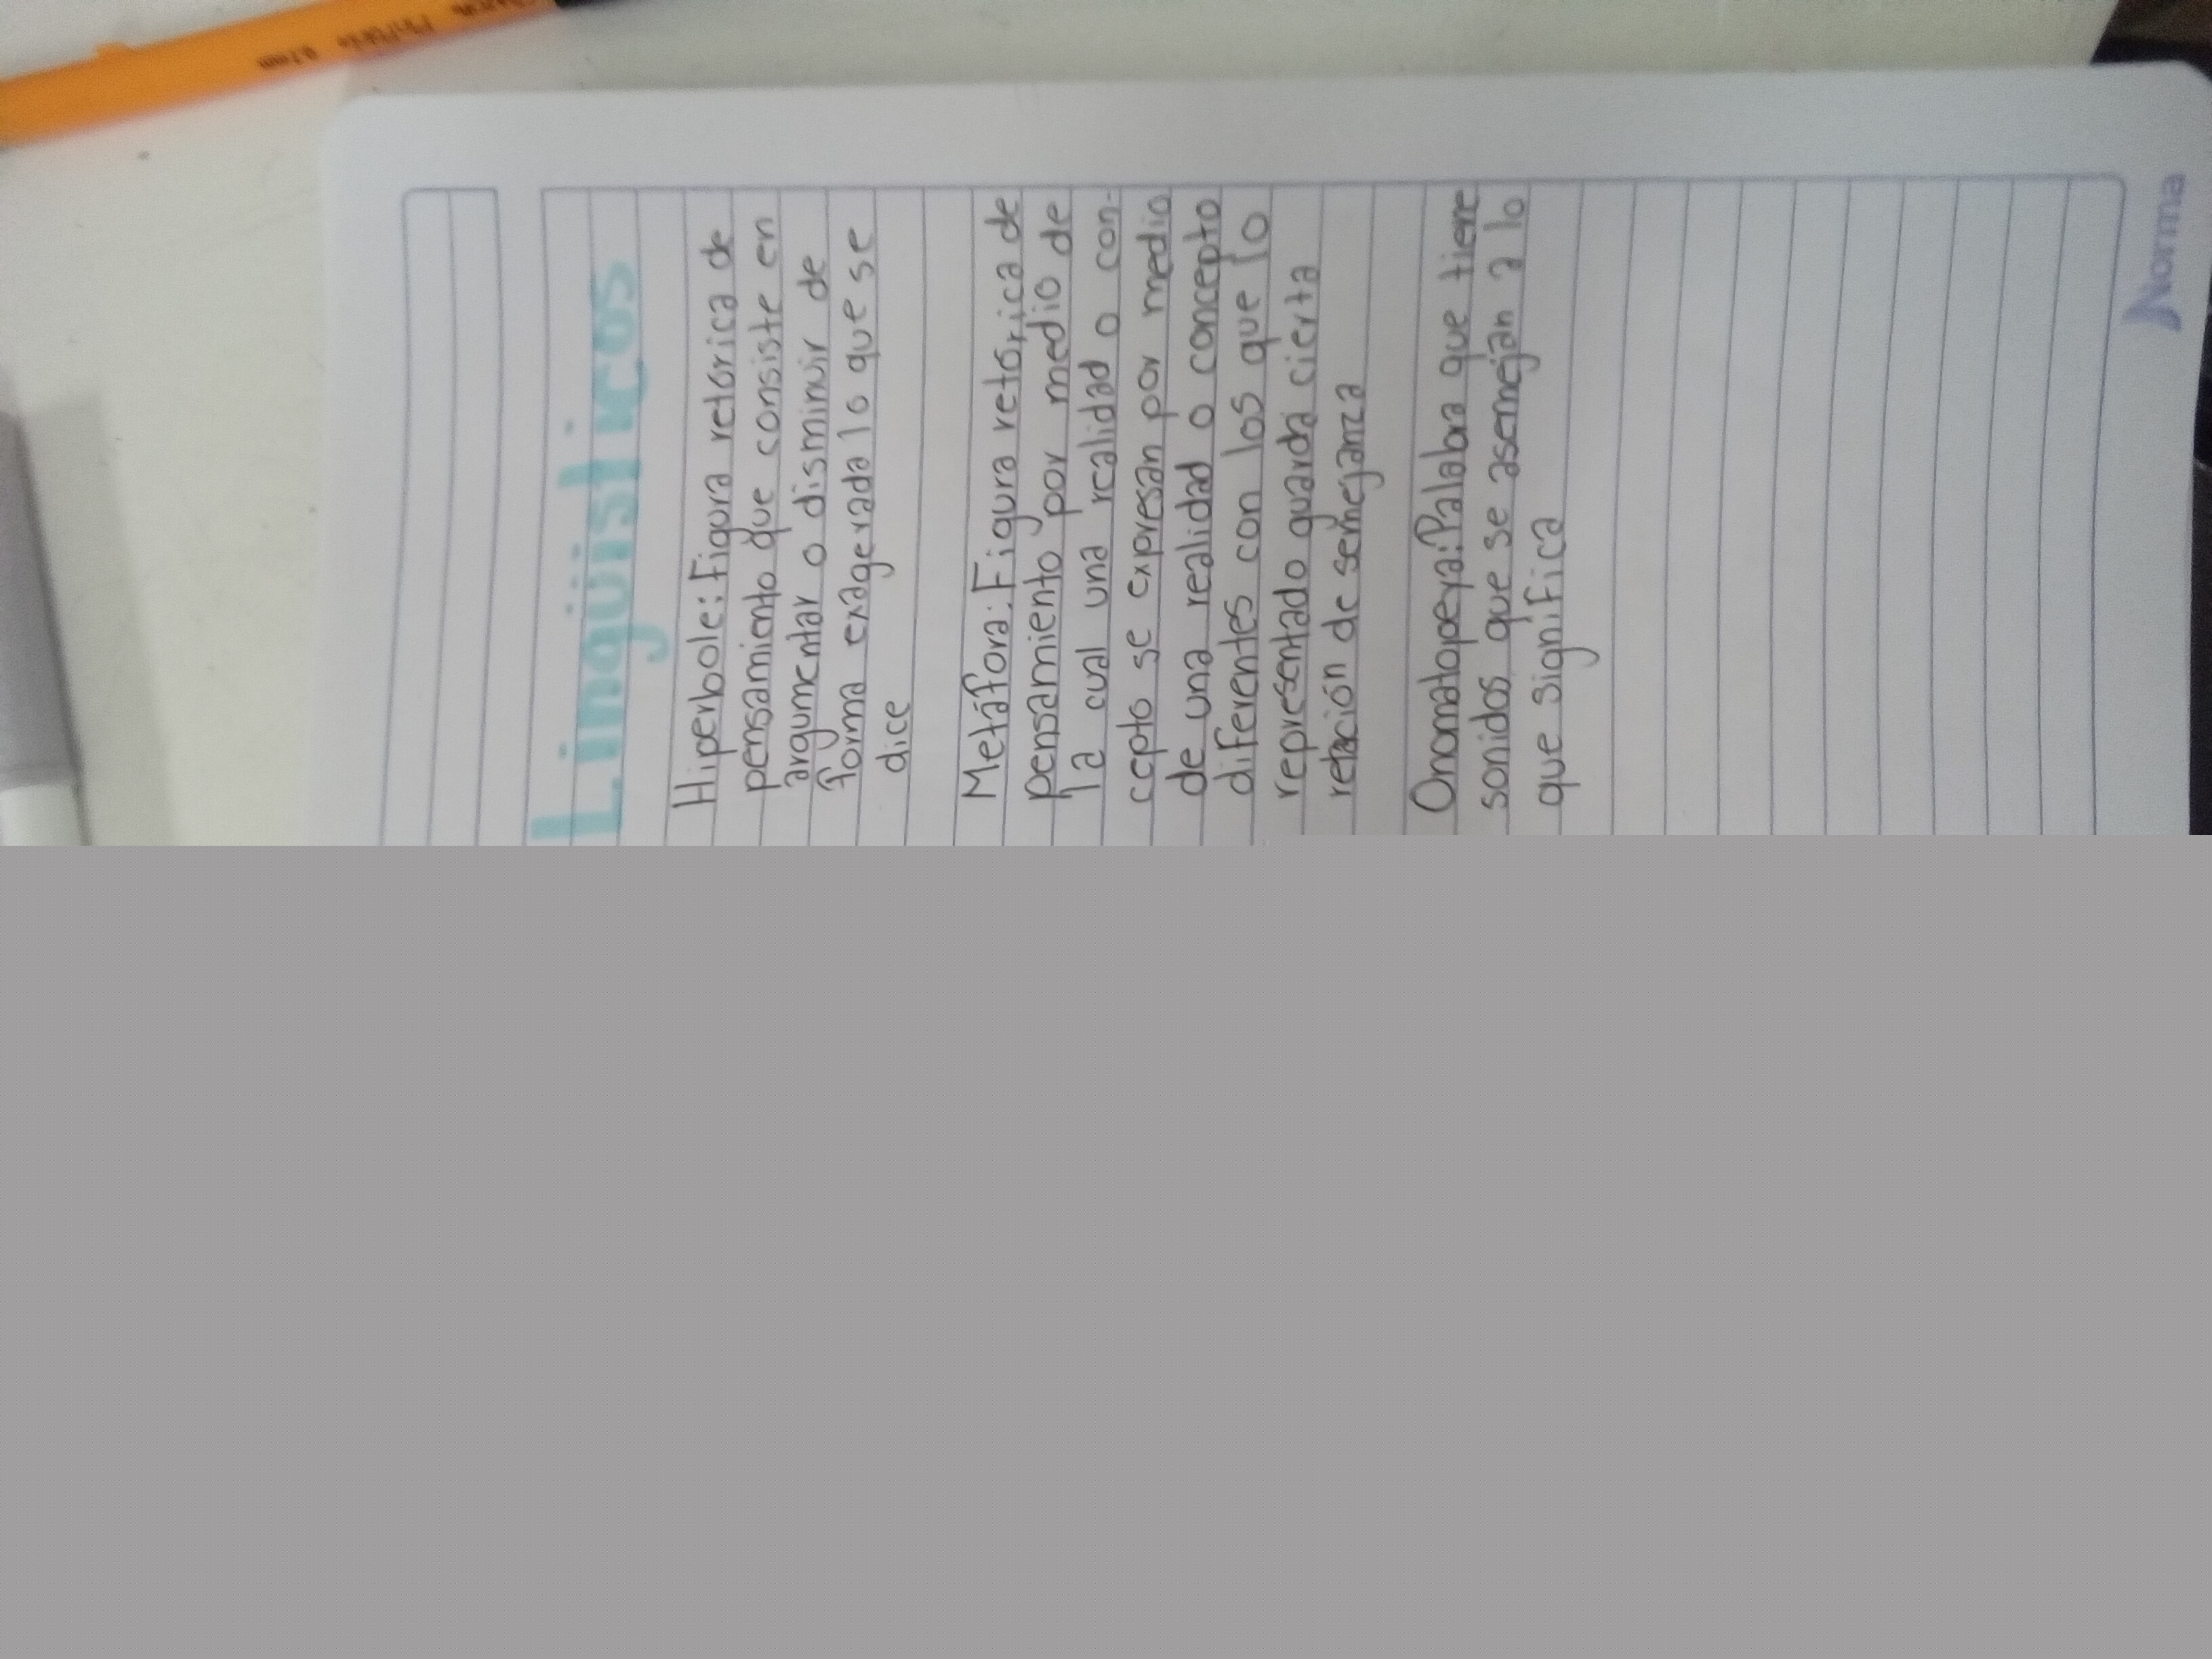 Lingüísticos
Hiperbole: Figura retórica de
pensamiento que consiste en
argumentar o disminuir de
forma exagerada lo que se
dice
Metáfora: Figura retórica de
pensamiento por medio de
la cual una realidad o con-
cepto se expresan por medio
de una realidad o concepto
diferentes con los que lo
representado guarda cierta
relación de semejanza
Onomatopeya: Palabra que tiene
sonidos que se asemejan a lo
que significa
Norma